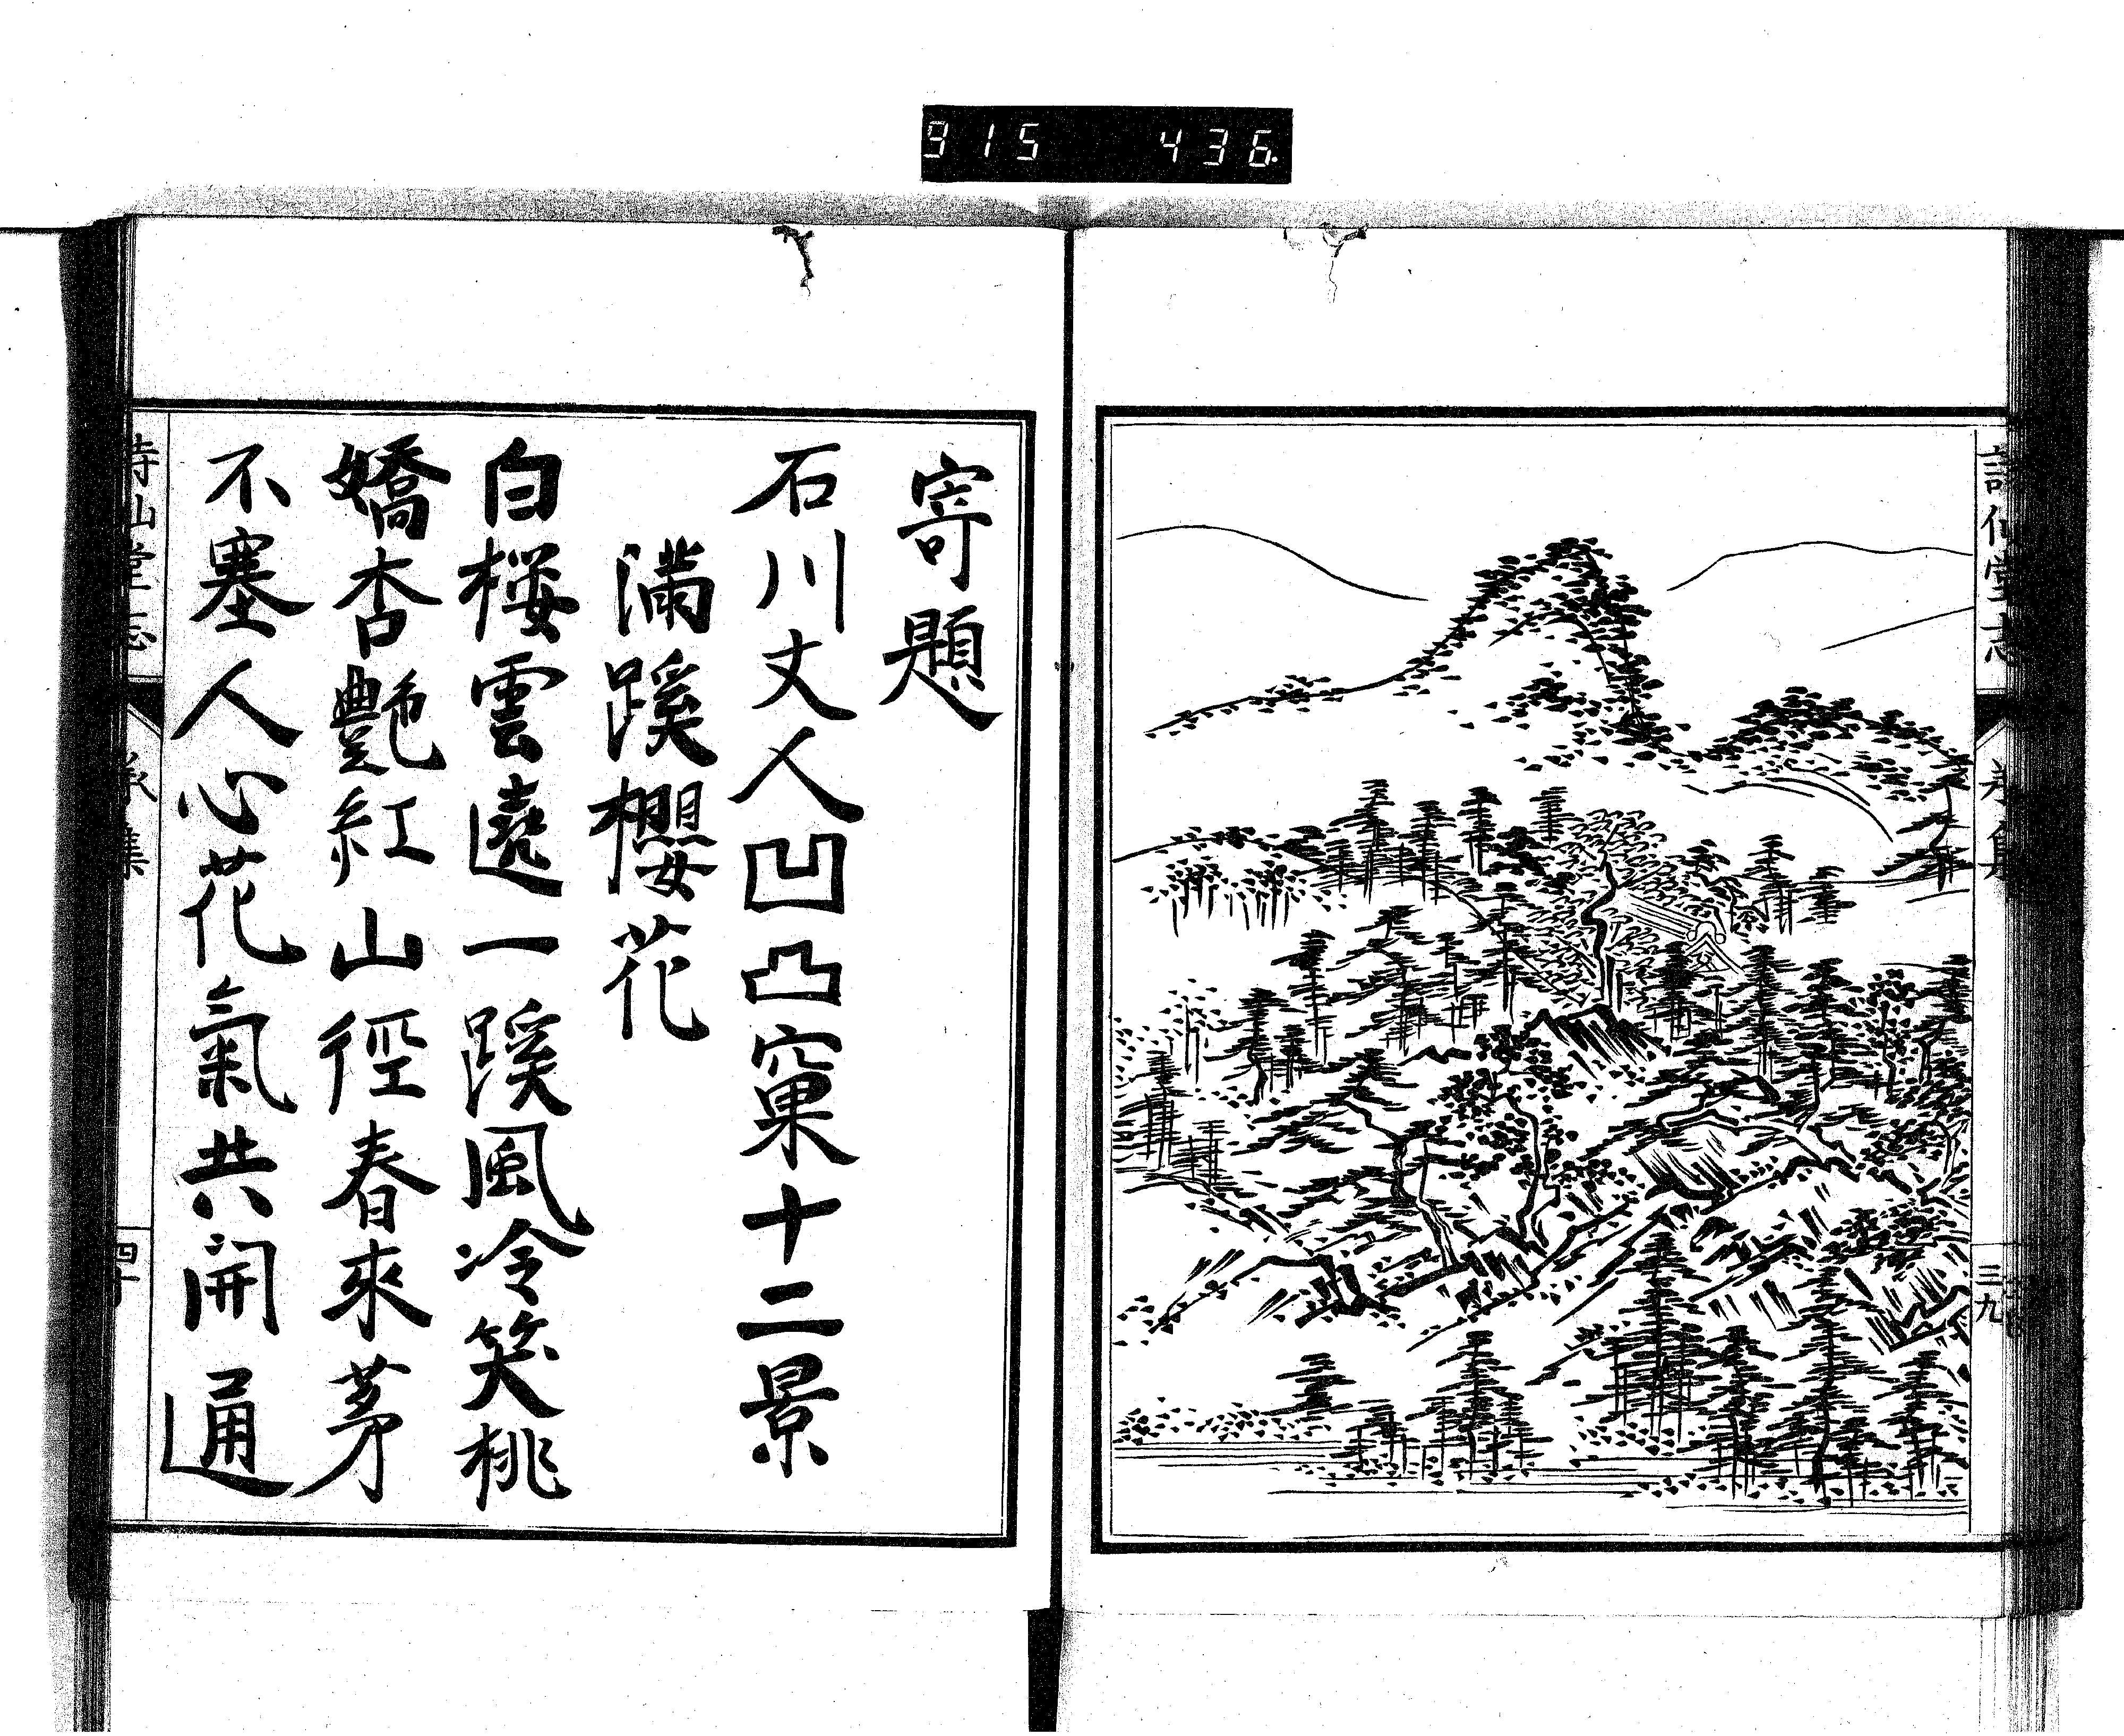 915 436
詩仙堂志
三九
寄題
石川丈人凹凸窠十二景
滿蹊櫻花
白桜雲遶一蹊風冷笑桃
嬌杏艷紅山徑春來茅
不塞人心花氣共開通